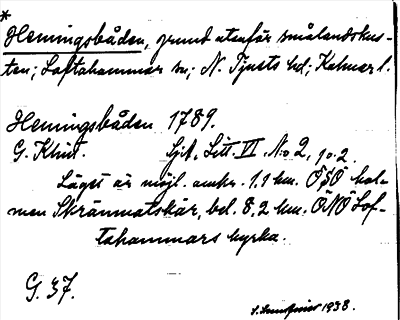 *
Hemingsbåden, grund utanför smålandskus-
ten; Loftahammar sn; N. Tjusts hd; Kalmar l.
Hemingsbåden 1789.
G. Klint. Sjö. Litt. VI No 2, 
Läget är möjl. omkr. 1.1 km. ÖSÖ hol-
men Skrämmatskär, bel. 8,2 km. ÖNÖ Lof-
tahammars kyrka.
G. 37.
1938.